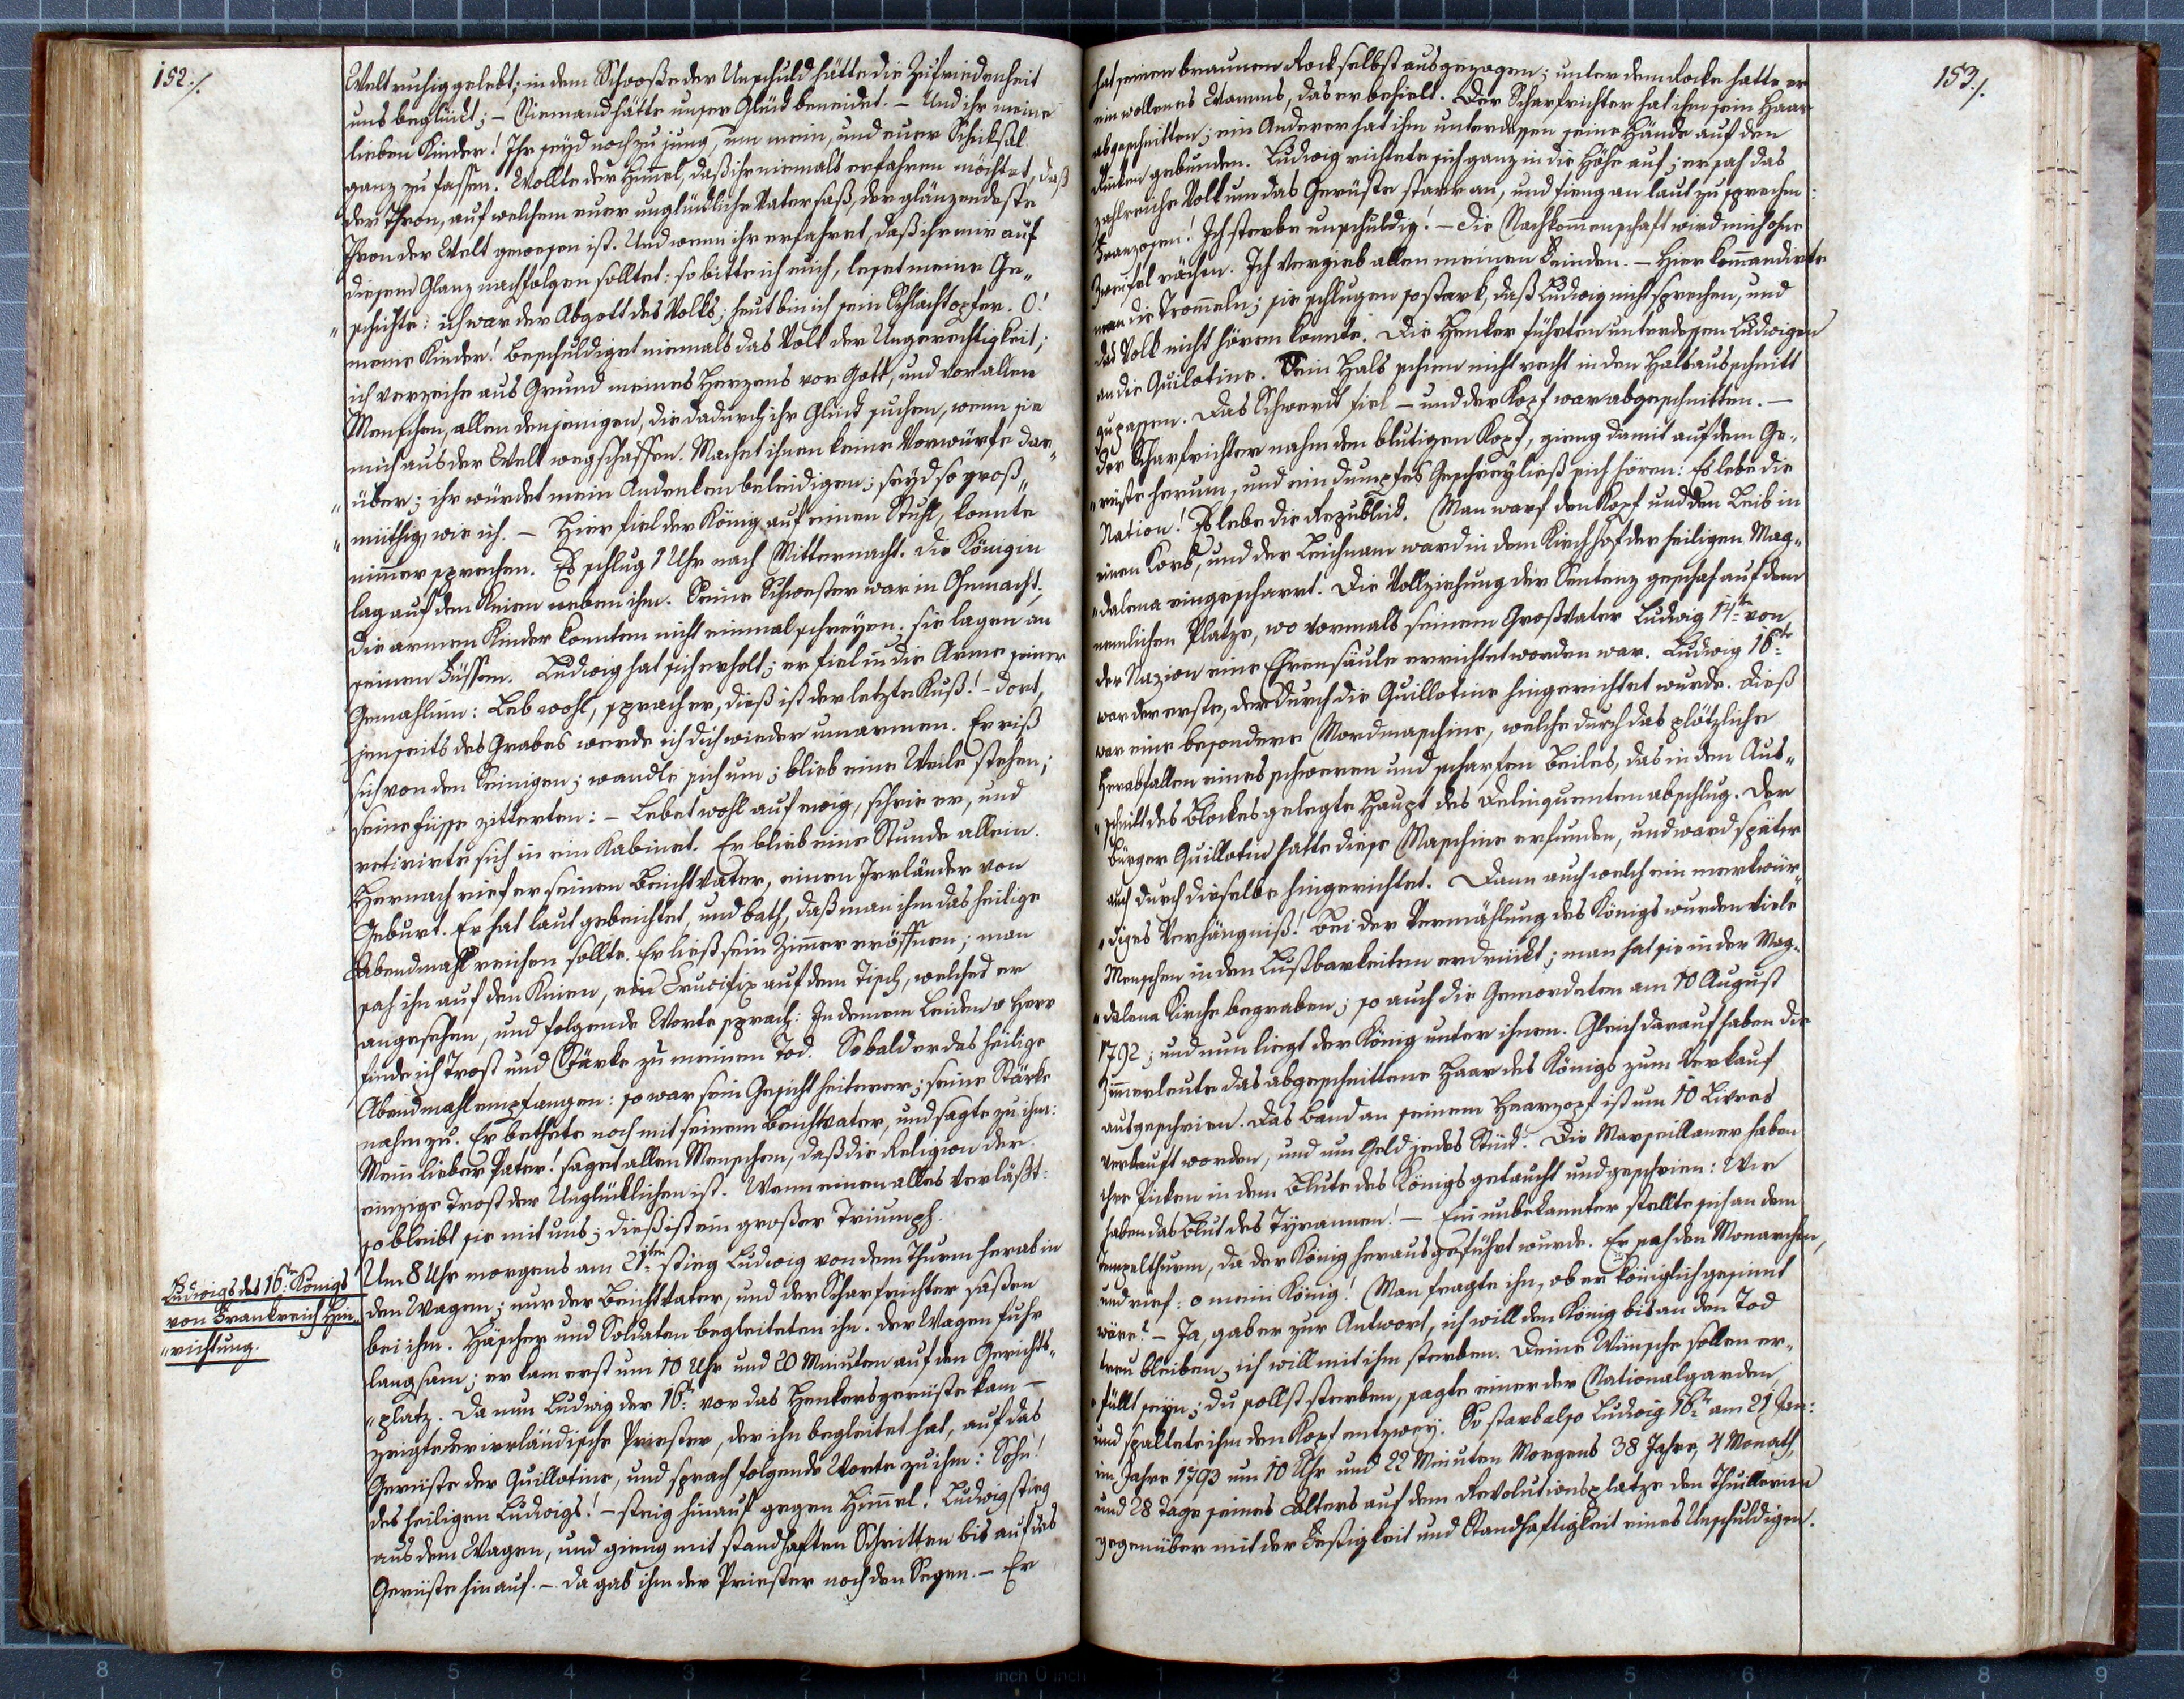 152./.
Welt ruhig gelebt; in dem Schooße der Unschuld hätte die Zufriedenheit
uns beglückt; – Niemand hätte unser Glück beneidet. – Und ihr meine
lieben Kinder! Ihr seyd noch zu jung, um mein, und euer Schiksal
ganz zu fassen. Wollte der Him̄el, daß ihr niemals erfahren möchtet, daß
der Thron, auf welchem euer unglückliche Vater saß, der glänzendeste
Thron der Welt gewesen ist. Und wenn ihr erfahret, daß ihr mir auf
diesem Glanz nachfolgen solltet: so bitte ich euch, leset meine Ge„
„schichte: ich war der Abgott des Volks; heut bin ich sein Schlachtopfer. O!
meine Kinder! Beschuldiget niemals das Volk der Ungerechtigkeit;
ich verzeihe aus Grund meines Herzens vor Gott, und vor allen
Menschen, allen denjenigen, die dadurch ihr Glück suchen, wenn sie
mich aus der Welt wegschaffen. Machet ihnen keine Vorwürfe dar„
„über; ihr würdet mein Andenken beleidigen; seyd so groß„
„müthig, wie ich. – Hier fiel der König auf einen Stuhl, konnte
nim̄er sprechen. Es schlug 1 Uhr nach Mitternacht. Die Königin
lag auf den Knien neben ihm. Seine Schwester war in Ohnmacht;
die armen Kinder konnten nicht einmal schreyen; sie lagen an
seinen Füssen. Ludwig hat sich erholt; er fiel in die Arme seiner
Gemahlinn: Leb wohl, sprach er, dieß ist der letzte Kuß! – Dort,
jenseits des Grabes werde ich dich wieder umarmen. Er riß
sich von den Seinigen; wandte sich um; blieb eine Weile stehen;
seine Füsse zitterten: – Lebet wohl auf ewig, schrie er, und
retirirte sich in ein Kabinet. Er blieb eine Stunde allein.
Hernach rief er seinen Beichtvater, einen Irrländer von
Geburt. Er hat laut gebeichtet, und bath, daß man ihm das heilige
Abendmahl reichen sollte. Er ließ sein Zim̄er eröffnen; man
sah ihn auf den Knien, ein Crucifix auf dem Tisch, welches er
angesehen, und folgende Worte sprach: In deinem Leiden o Herr
finde ich Trost und Stärke zu meinem Tod. Sobald er das heilige
Abendmahl empfangen: so war sein Gesicht heiterer; seine Stärke
nahm zu. Er bethete noch mit seinem Beichtvater, und sagte zu ihm:
Mein lieber Pater! saget allen Menschen, daß die Religion der
einzige Trost der Unglücklichen ist. Wenn einen alles verläßt:
so bleibt sie mit uns; dieß ist ein großer Triumph.
Ludwigs des 16ten Königs
von Frankreich Hin„
„richtung.
Um 8 Uhr morgens am 21ten stieg Ludwig von dem Thurm herab in
den Wagen; nur der Beichtvater, und der Scharfrichter saßen
bei ihm. Häscher und Soldaten begleiteten ihn. Der Wagen fuhr
langsam; er kam erst um 10 Uhr und 20 Minuten auf den Gerichts„
„platz. Da nun Ludwig der 16te vor das Henkersgerüste kam –
zeigte der irrländische Priester, der ihn begleitet hat, auf das
Gerüste der Quillotine, und sprach folgende Worte zu ihm: Sohn
des heiligen Ludwigs! – steig hinauf gegen Him̄el! Ludwig stieg
aus dem Wagen, und gieng mit standhaften Schritten bis auf das
Gerüste hinauf. – Da gab ihm der Priester noch den Segen. – Er
153./.
hat seinen braunen Rock selbst ausgezogen; unter dem Rocke hatte er
ein wollenes Wamms, das er behielt. Der Scharfrichter hat ihm sein Haar
abgeschnitten; ein Anderer hat ihm unterdessen seine Hände auf den
Rücken gebunden. Ludwig richtete sich ganz in die Höhe auf; er sah das
zahlreiche Volk um das Gerüste starr an, und fieng an laut zu sprechen:
Franzosen! Ich sterbe unschuldig! – die Nachkom̄enschaft wird mich ohne
Zweifel rächen. Ich vergieb allen meinen Feinden. – Hier kom̄andirte
man die Trom̄eln; sie schlugen so stark, daß Ludwig nicht sprechen, und
das Volk nicht hören konnte. Die Henker führten unterdessen Ludwigen
an die Quilotine. Sein Hals schien nicht recht in den Halsausschnitt
zu passen. Das Schwerdt fiel – und der Kopf war abgeschnitten. –
Der Scharfrichter nahm den blutigen Kopf, gieng damit auf dem Ge„
„rüste herum, und ein dumpfes Geschrey ließ sich hören: Es lebe die
Nation! Es lebe die Republick. Man warf den Kopf und den Leib in
einen Korb, und der Leichnam ward in dem Kirchhof der heiligen Mag„
„dalena eingescharrt. Die Vollziehung der Sentenz geschah auf dem
nemlichen Platze, wo vormals seinem Großvater Ludwig 14te von
der Nazion eine Ehrensäule errichtet worden war. Ludwig 16te
war der erste, der durch die Quillotine hingerichtet wurde. Dieß
war eine besondere Mordmaschine, welche durch das plötzliche
Herabfallen eines schweren und scharfen Beiles, das in den Aus„
„schnitt des Blockes gelegte Haupt des Delinquenten abschlug. Der
Bürger Quillotin hatte diese Maschine erfunden, und ward später
auch durch dieselbe hingerichtet. Dann auch welch ein merkwür„
„diges Verhängniß! Bei der Vermählung des Königs wurden viele
Menschen in den Lustbarkeiten erdrückt; man hat sie in der Mag„
„dalena Kirche begraben; so auch die Gemordeten am 10 August
1792; und nun liegt der König unter ihnen. Gleich darauf haben die
Zim̄erleute das abgeschnittene Haar des Königs zum Verkauf
ausgeschrien. Das Band an seinem Haarzopf ist um 10 Livres
verkauft worden, und um Geld jedes Stück. Die Marseillaner haben
ihre Picken in dem Blute des Königs getaucht und geschrien: Wir
haben das Blut des Tyrannen! – Ein unbekannter stellte sich an dem
Tempelthurm, da der König herausgeführt wurde. Er sah den Monarchen,
und rief: o mein König! Man fragte ihn, ob er königlich gesinnt
wäre? – Ja, gab er zur Antwort, ich will dem König bis an den Tod
treu bleiben, ich will mit ihm sterben. Deine Wünsche sollen er„
„füllt seyn; du sollst sterben, sagte einer der Nationalgarden,
und spaltete ihm den Kopf entzwey. So starb also Ludwig 16te am 21 Jan:
im Jahre 1793 um 10 Uhr und 22 Minuten Morgens 38 Jahre, 4 Monath,
und 28 Tage seines Alters auf dem Revolutionsplatze den Thuillerien
gegenüber mit der Festigkeit und Standhaftigkeit eines Unschuldigen.
8 7 6 5 4 3 2 1 inch 0 inch 1 2 3 4 5 6 7 8 9